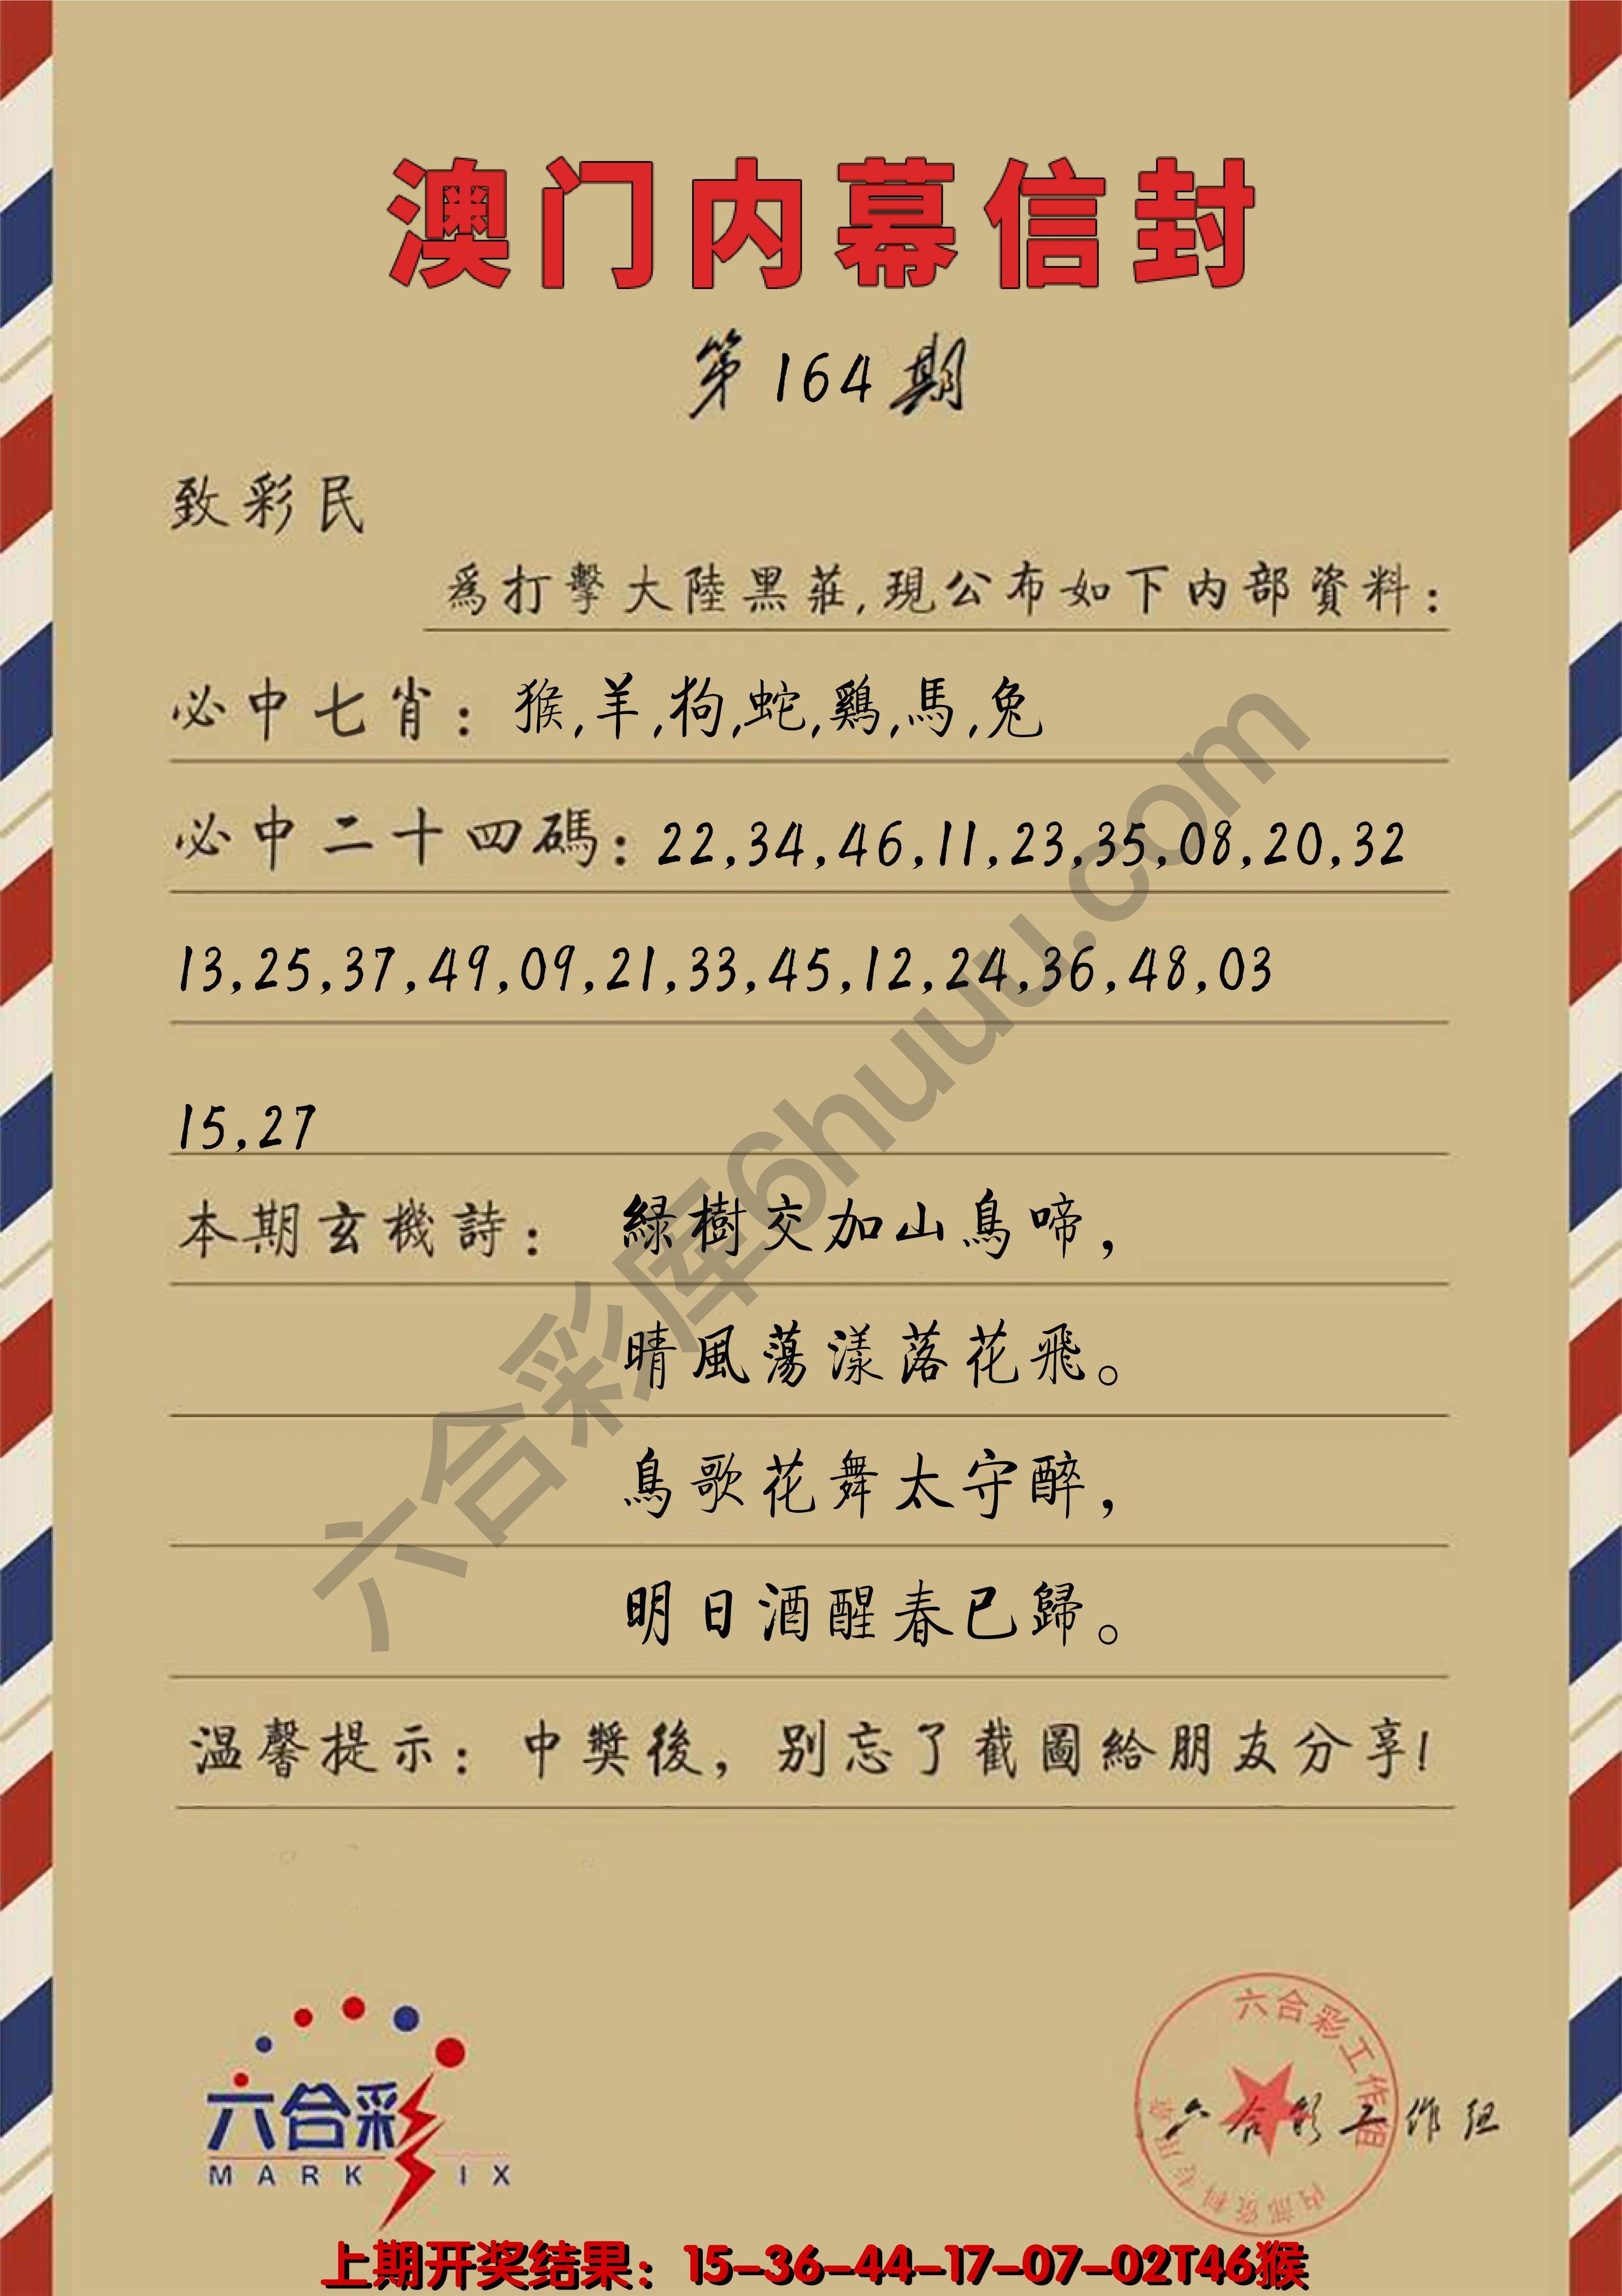 澳门内幕信封
第164期
致彩民
為打擊大陸黑莊,現公布如下内部資料:
必中七肖: 猴,羊,狗,蛇,鷄,馬,兔
必中二十四碼: 22,34,46,11,23,35,08,20,32
13,25,37,49,09,21,33,45,12,24,36,48,03
15,27
本期玄機詩: 緑樹交加山鳥啼,
晴風蕩漾落花飛。
鳥歌花舞太守醉,
明日酒醒春已歸。
温馨提示: 中獎後, 别忘了截圖給朋友分享!
六合彩库6huuu.com
六合彩
MARK IX
六合彩工作组
内部资料专用章
六合彩工作组
上期开奖结果: 15-36-44-17-07-02T46猴